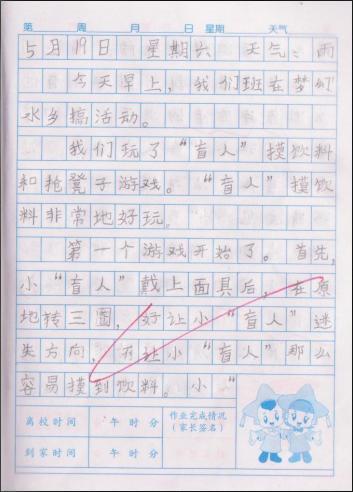 第 周 月 日 星期 天气
5月19日 星期六 天气：雨
今天早上，我们班在梦幻
水乡搞活动。
我们玩了“盲人”摸饮料
和抢凳子游戏。“盲人”摸饮
料非常地好玩。
第一个游戏开始了。首先，
小“盲人”戴上面具后，在原
地转三圈，好让小“盲人”迷
失方向，不让小“盲人”那么
容易摸到饮料。小“
离校时间 午 时 分 作业完成情况
（家长签名）
到家时间 午 时 分